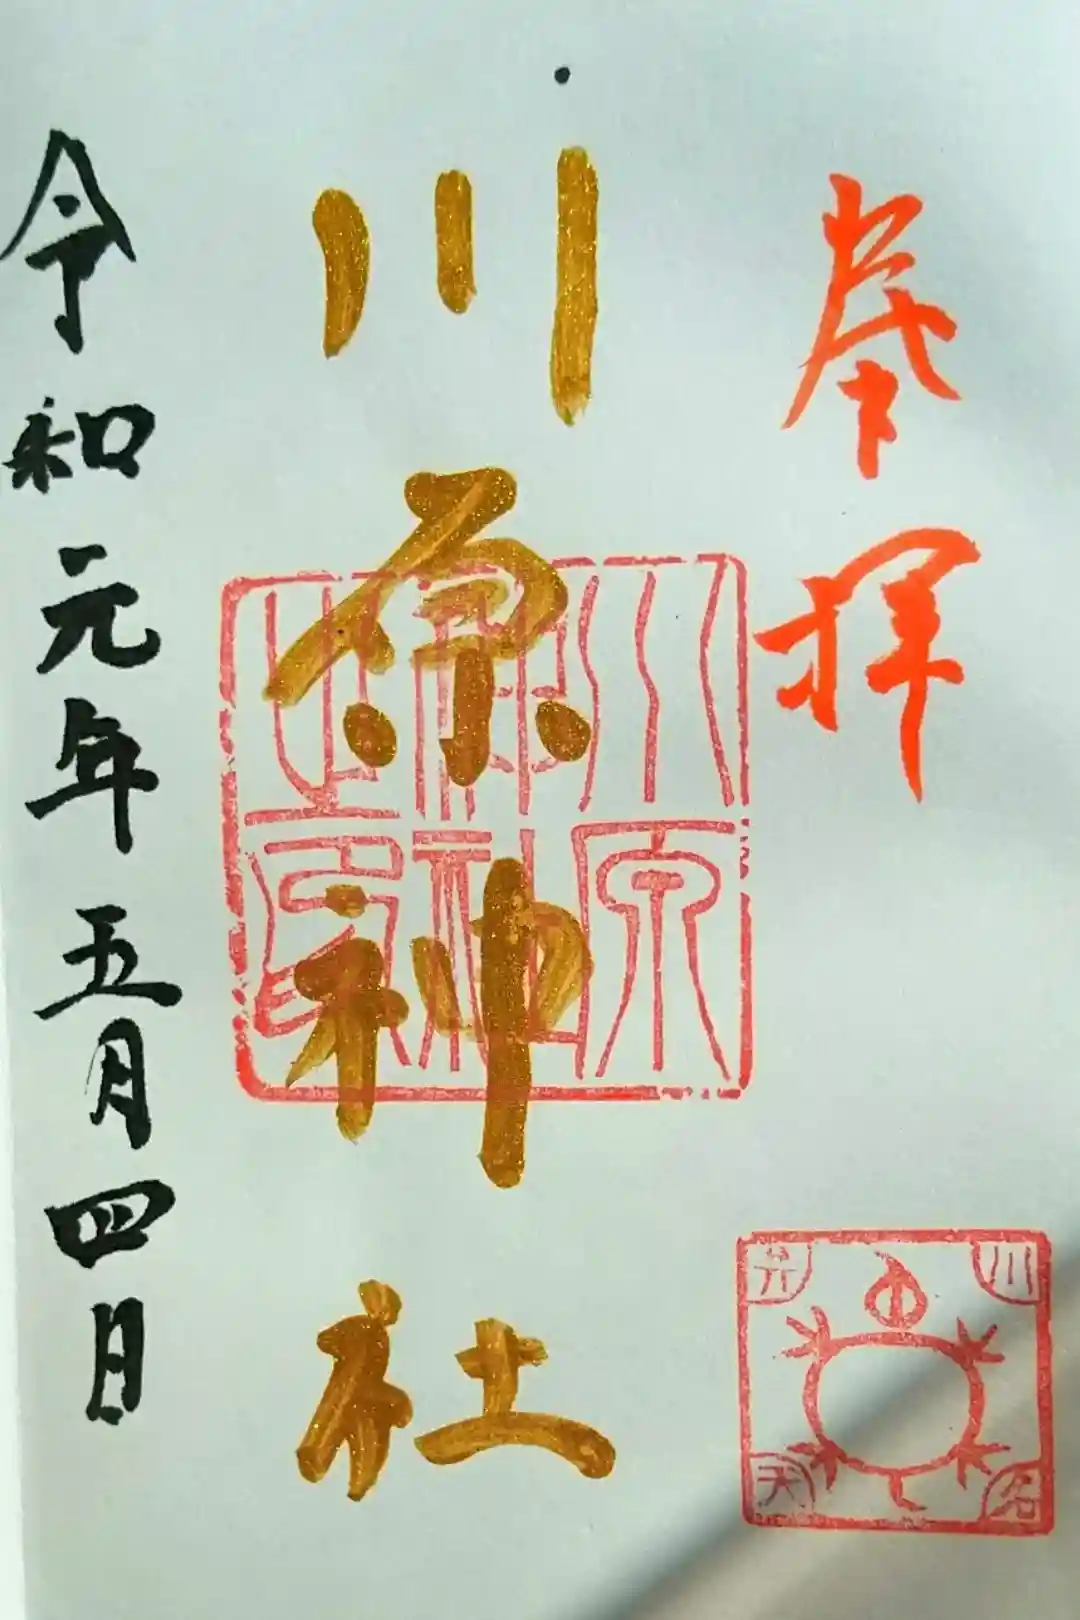 奉拝
川原神社
令和元年五月四日
川原
神社
之印
川名
弁天